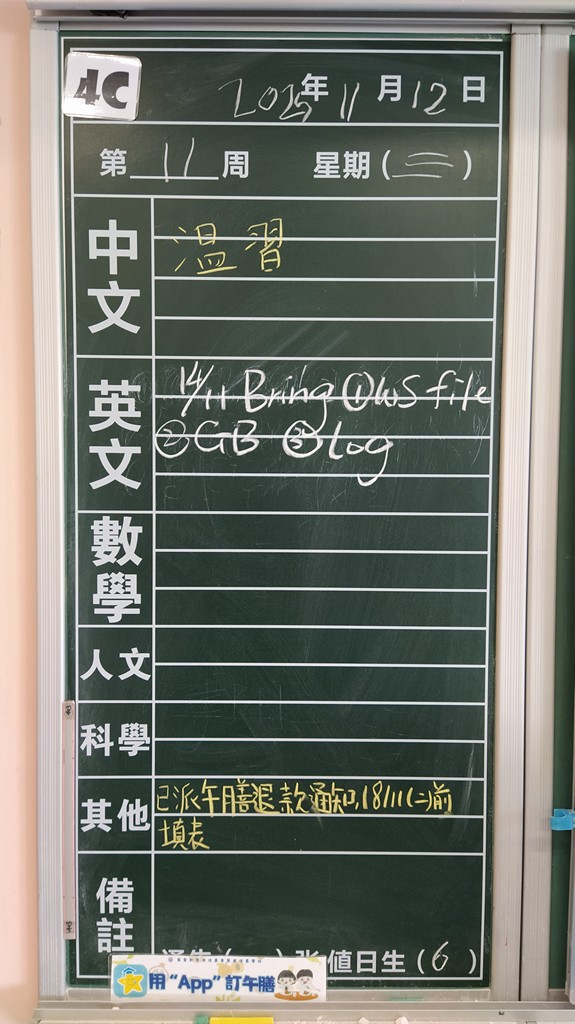 4C
2025年11月12日
第11周 星期(三)
中文
温習
英文
14/11 Bring ①WS file
②GB ③Log
數學
人文
科學
其他
已派午膳退款通知,18/11(二)前
填表
備註
通告( )張 值日生(6)
用“App”訂午膳